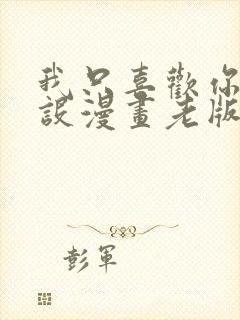 我只喜歡你
設漫畫老版
彭軍